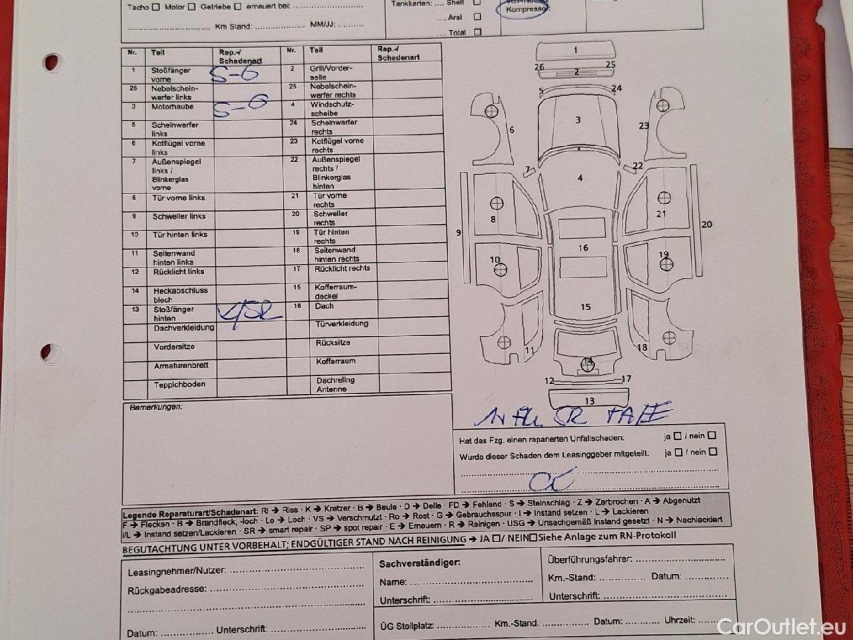 Tacho ☐ Motor ☐ Getriebe ☐ erneuert bei:
Km Stand: MM/JJ:
Tankkarten: Shell ☐
Aral ☐
Total ☐
Kompressor
Nr. Teil Rep.-/ Schadenart Nr. Teil Rep.-/ Schadenart
1 Stoßfänger vorne S-G 2 Grill/Vorderseite
26 Nebelscheinwerfer links 25 Nebelscheinwerfer rechts
3 Motorhaube S-G 4 Windschutzscheibe
5 Scheinwerfer links 24 Scheinwerfer rechts
6 Kotflügel vorne links 23 Kotflügel vorne rechts
7 Außenspiegel links / Blinkerglas vorne 22 Außenspiegel rechts / Blinkerglas hinten
8 Tür vorne links 21 Tür vorne rechts
9 Schweller links 20 Schweller rechts
10 Tür hinten links 19 Tür hinten rechts
11 Seitenwand hinten links 18 Seitenwand hinten rechts
12 Rücklicht links 17 Rücklicht rechts
14 Heckabschlussblech 15 Kofferraumdeckel
13 Stoßfänger hinten 16 Dach
Dachverkleidung Türverkleidung
Vordersitze Rücksitze
Armaturenbrett Kofferraum
Teppichboden Dachreling Antenne
1
26 25
2
5 24
3
6 23
7 22
4
8 21
9 20
16
10 19
15
11 18
14
12 17
13
Bemerkungen:
Hat das Fzg. einen reparierten Unfallschaden: ja ☐ / nein ☐
Wurde dieser Schaden dem Leasinggeber mitgeteilt: ja ☐ / nein ☐
Legende Reparaturart/Schadenart: Ri → Riss - K → Kratzer - B → Beule - D → Delle FD → Fehlend - S → Steinschlag - Z → Zerbrochen - A → Abgenutzt
F → Flecken - H → Brandfleck, -loch - Lo → Loch - VS → Verschmutzt - Ro → Rost - G → Gebrauchsspur - I → Instand setzen - L → Lackieren
I/L → Instand setzen/Lackieren - SR → smart repair - SP → spot repair - E → Erneuern - R → Reinigen - USG → Unsachgemäß instand gesetzt - N → Nachlackiert
BEGUTACHTUNG UNTER VORBEHALT; ENDGÜLTIGER STAND NACH REINIGUNG → JA ☐/ NEIN☐Siehe Anlage zum RN-Protokoll
Leasingnehmer/Nutzer:
Rückgabeadresse:
Datum: Unterschrift:
Sachverständiger:
Name:
Unterschrift:
Überführungsfahrer:
Km.-Stand: Datum:
Unterschrift:
ÜG Stollplatz: Km.-Stand: Datum: Uhrzeit:
CarOutlet.eu